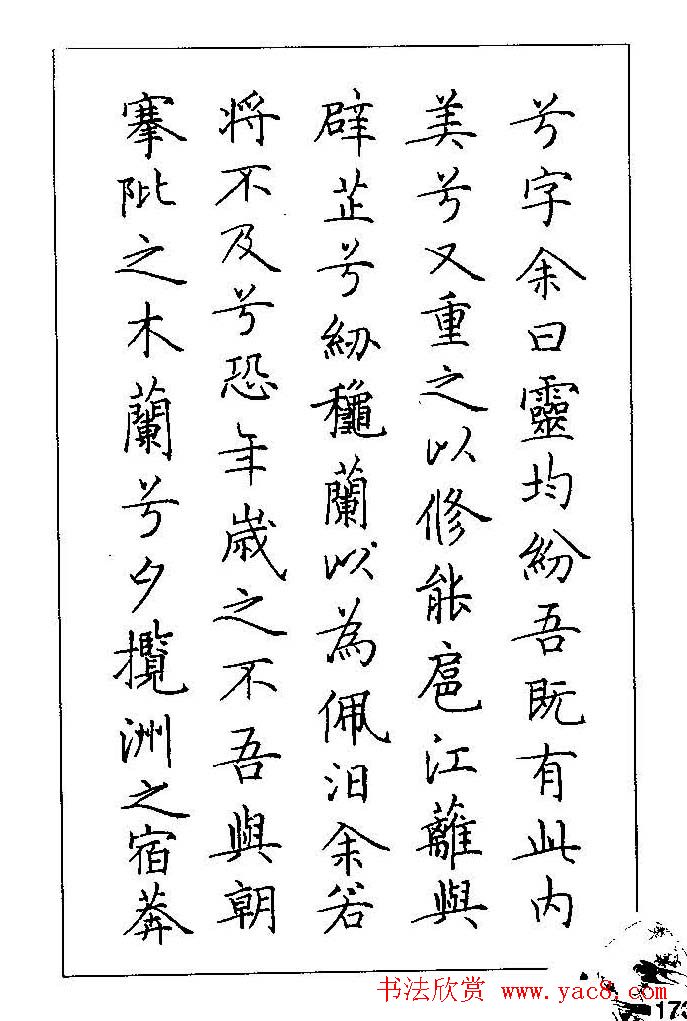 兮字余曰靈均紛吾既有此内
美兮又重之以修能扈江蘺與
辟芷兮紉穐蘭以為佩汨余若
將不及兮恐年歲之不吾與朝
搴阰之木蘭兮夕攬洲之宿莽
书法欣赏 www.yac8.com
173